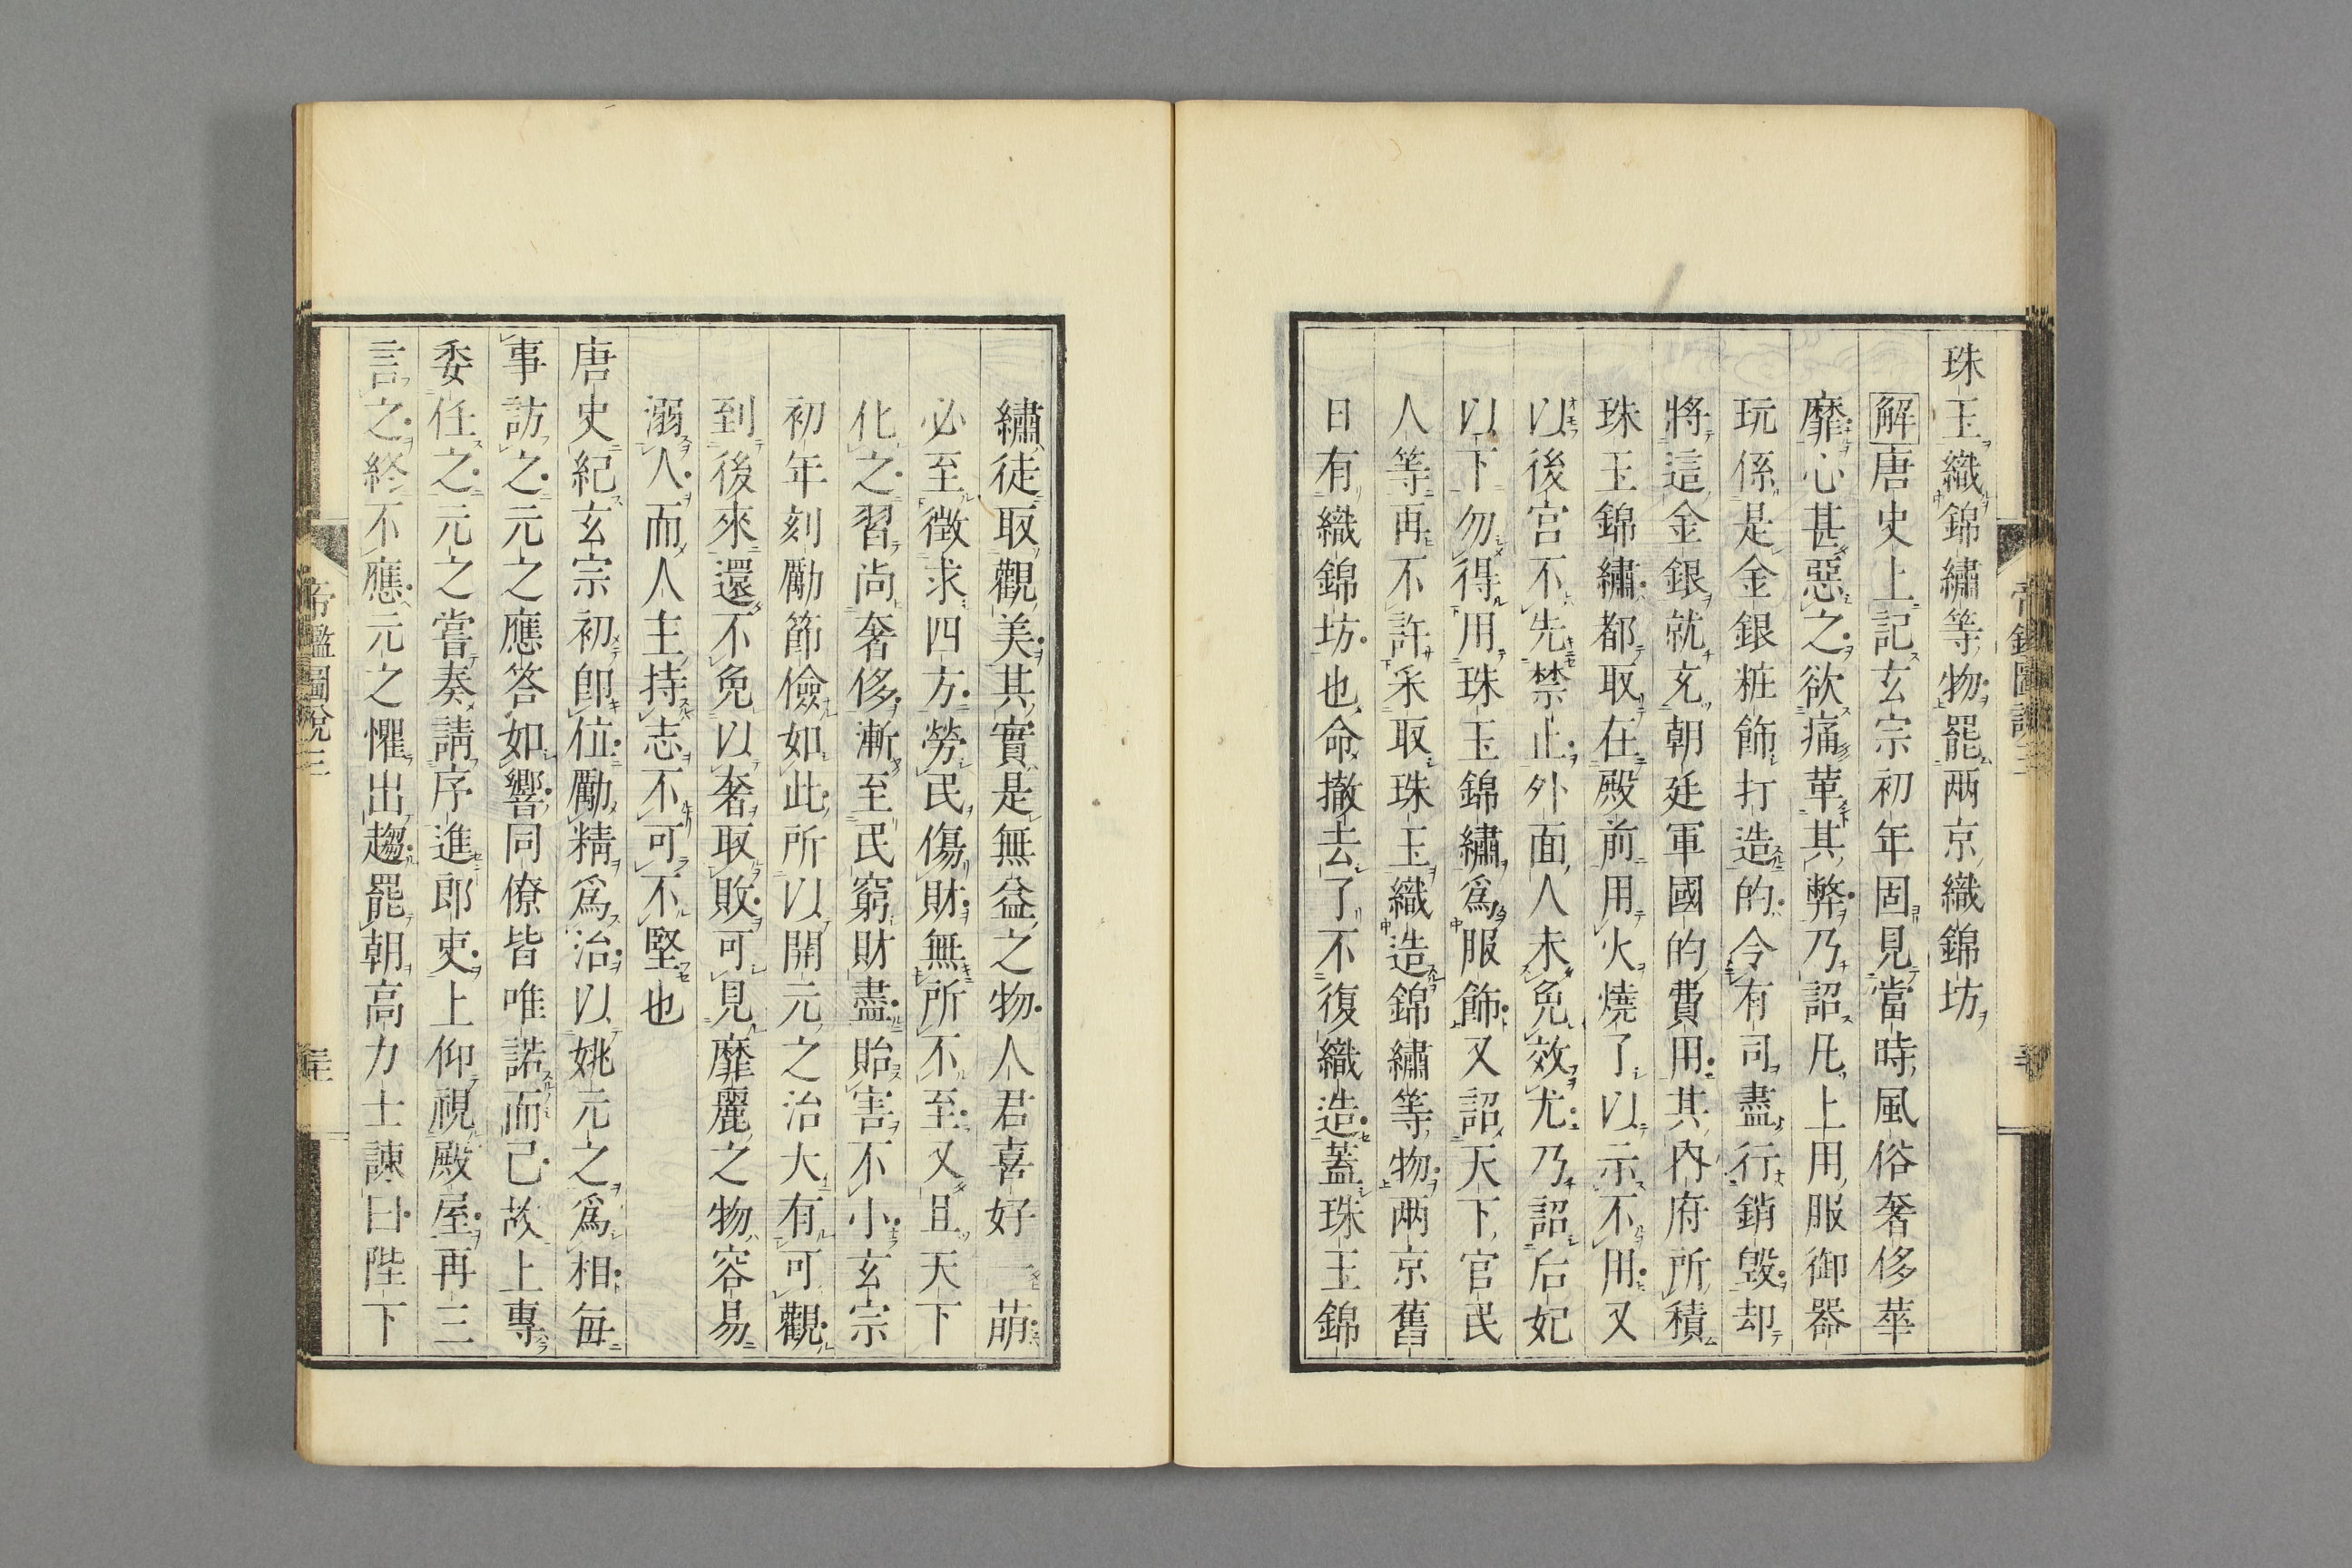 珠玉織錦繡等物罷兩京織錦坊
解唐史上記玄宗初年固見當時風俗奢侈華
靡心甚惡之欲痛革其弊乃詔凡上用服御器
玩係是金銀粧飾打造的令有司盡行銷毁却
將這金銀就充朝廷軍國的費用其內府所積
珠玉錦繡都取在殿前用火燒了以示不用又
以後宮不先禁止外面人未免效尤乃詔后妃
以下勿得用珠玉錦繡爲服飾又詔天下官民
人等再不許采取珠玉織造錦繡等物兩京舊
日有織錦坊也命撤去了不復織造蓋珠玉錦
繡徒取觀美其實是無益之物人君喜好一萠
必至徵求四方勞民傷財無所不至又且天下
化之習尚奢侈漸至民窮財盡貽害不小玄宗
初年刻勵節儉如此所以開元之治大有可觀
到後來還不免以奢取敗可見靡麗之物容易
溺人而人主持志不可不堅也
唐史紀玄宗初卽位勵精爲治以姚元之爲相每
事訪之元之應答如響同僚皆唯諾而已故上專
委任之元之嘗奏請序進郎吏上仰視殿屋再三
言之終不應元之懼出趨罷朝高力士諫曰陛下
帝鑑圖說三